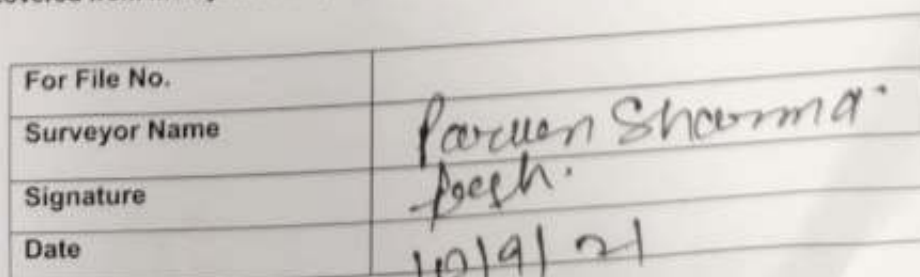 For File No.
Surveyor Name Parveen Sharma.
Signature
Date 10/9/21